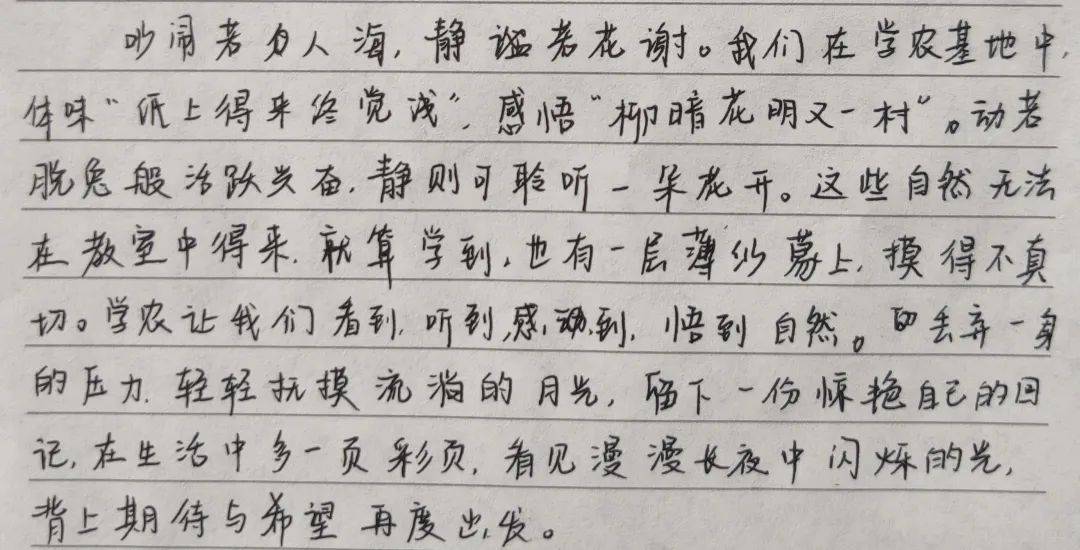 吵闹若为人海，静谧若花谢。我们在学农基地中，
体味“纸上得来终觉浅”，感悟“柳暗花明又一村”。动若
脱兔般活跃兴奋，静则可聆听一朵花开。这些自然无法
在教室中得来，就算学到，也有一层薄纱蒙上，摸得不真
切。学农让我们看到，听到，感动到，悟到自然。丢弃一身
的压力，轻轻抚摸流淌的月光，留下一份惊艳自己的回
记，在生活中多一页彩页，看见漫漫长夜中闪烁的光，
背上期待与希望再度出发。